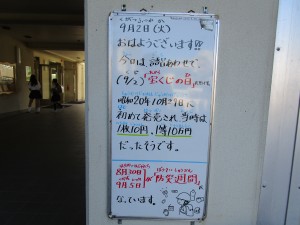 9月2日(火)
おはようございます!!
今日は、語呂あわせで、
(9/2)宝くじの日、
昭和20年10月29日に
初めて発売され、当時は
1枚10円、1等10万円
だったそうです。
8月30日
9月5日が"防災週間"に
なっています。